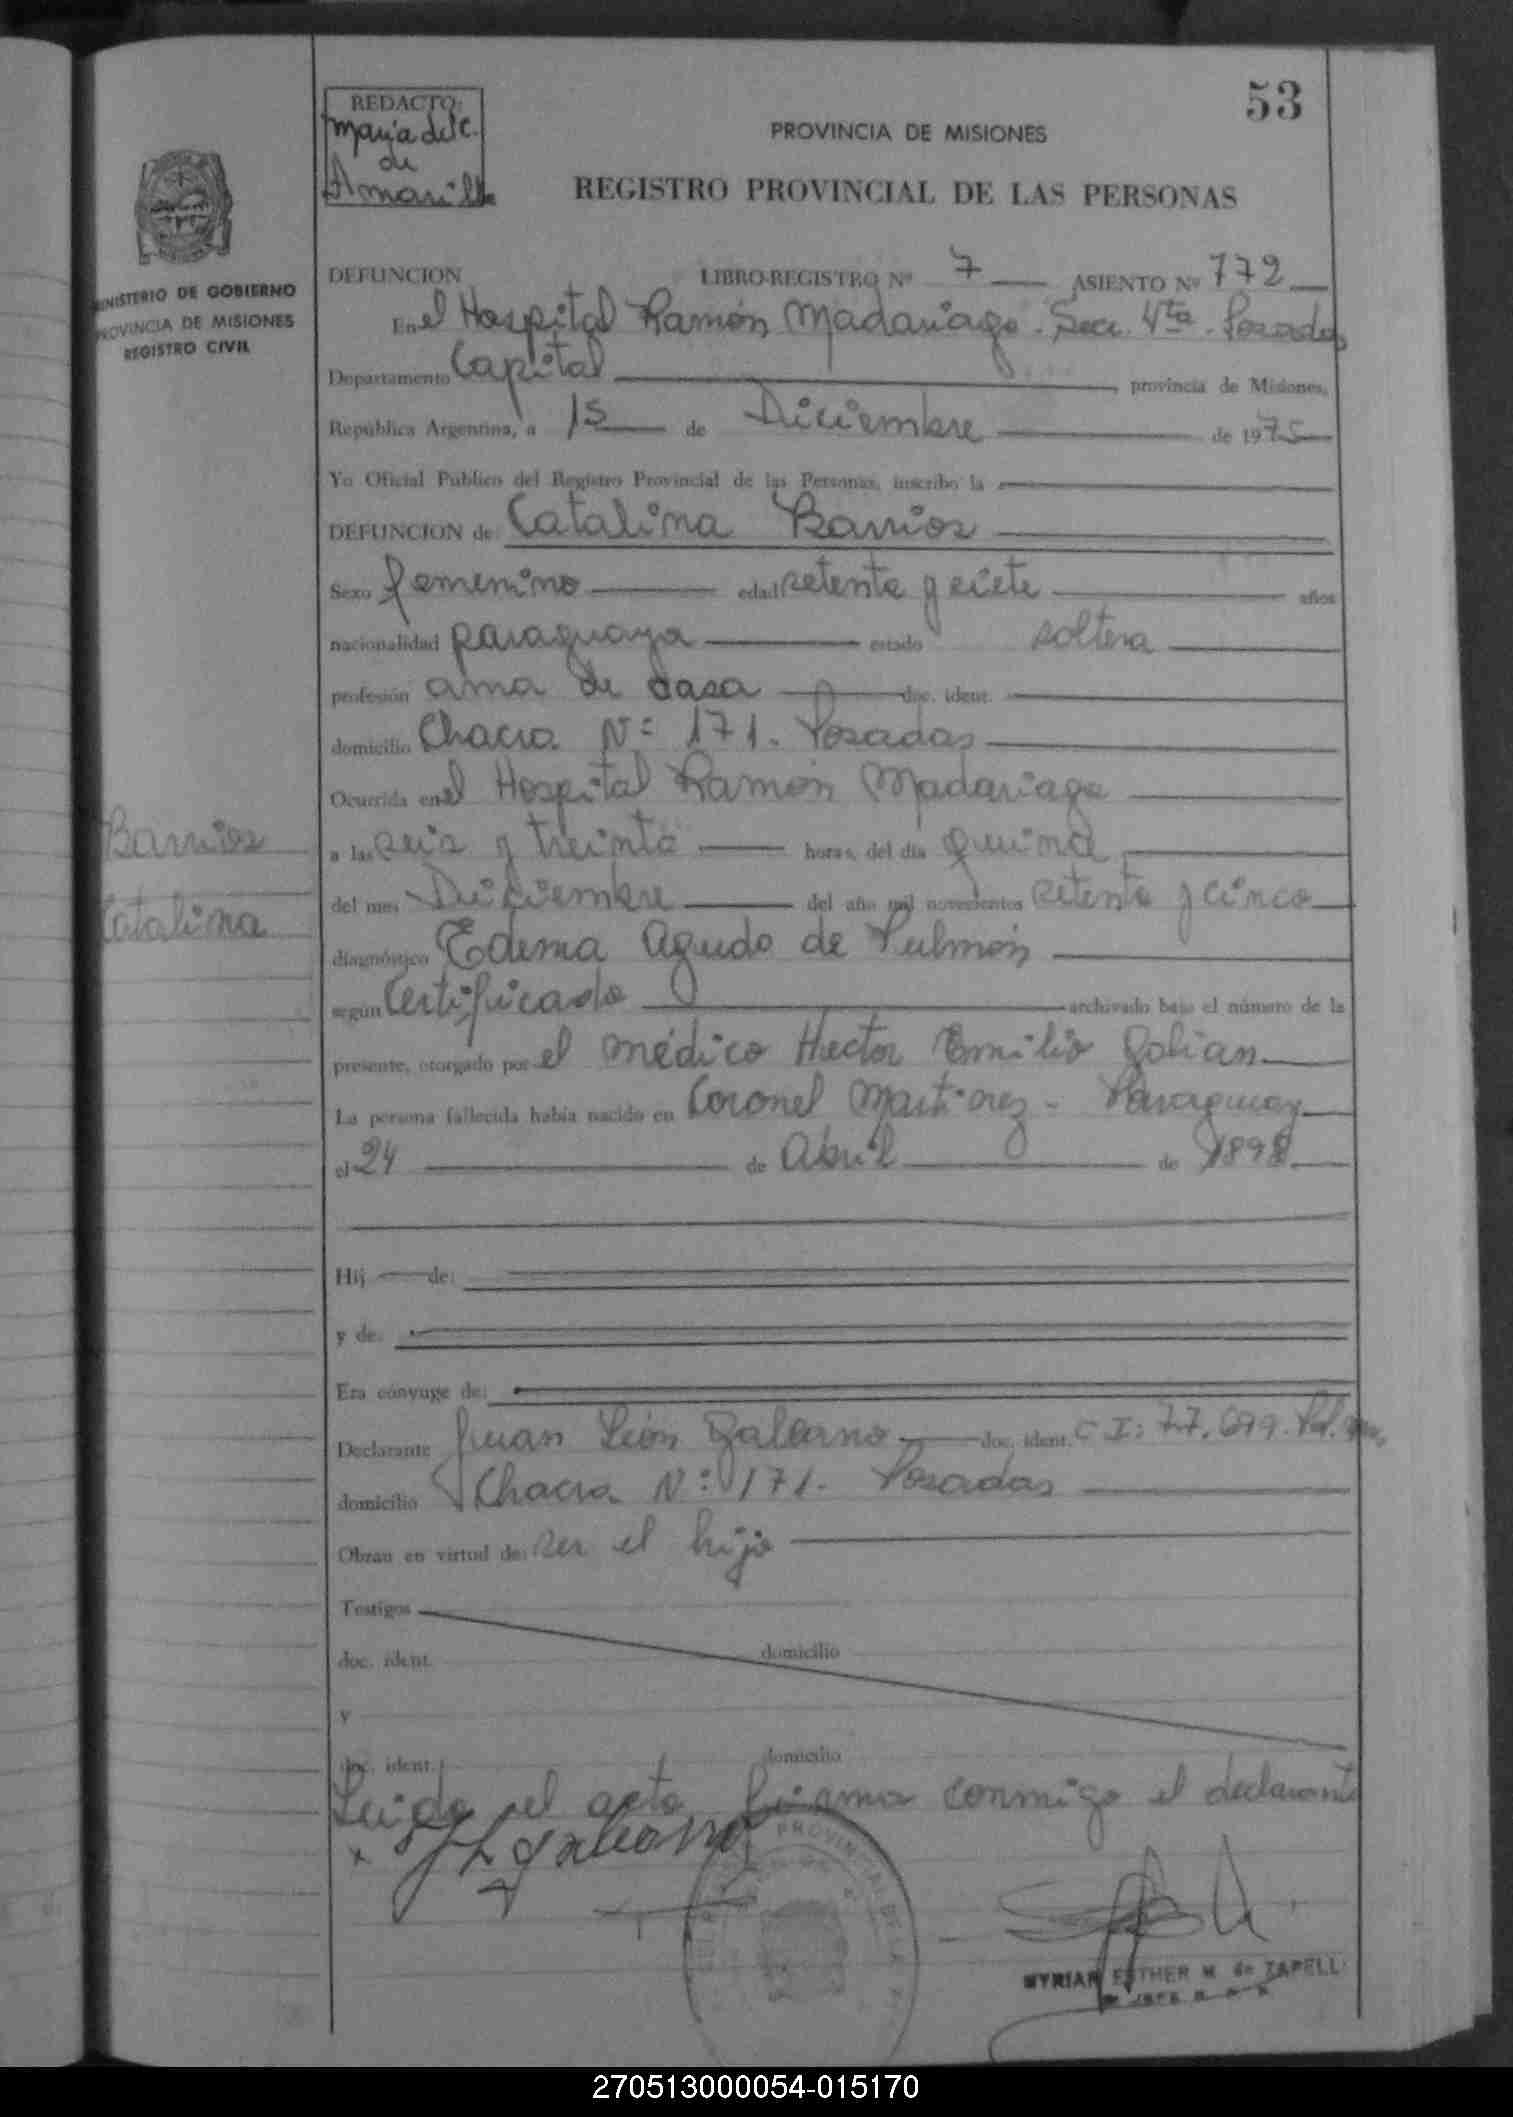 53
REDACTO:
Maria del C.
de
Amarill
PROVINCIA DE MISIONES
REGISTRO PROVINCIAL DE LAS PERSONAS
MINISTERIO DE GOBIERNO
PROVINCIA DE MISIONES
REGISTRO CIVIL
DEFUNCION LIBRO-REGISTRO Nº 7 ASIENTO Nº 772
En el Hospital Ramón Madariaga - Secc. 4ta - Posadas
Departamento Capital, provincia de Misiones,
República Argentina, a 15 de Diciembre de 1975
Yo Oficial Público del Registro Provincial de las Personas, inscribo la
DEFUNCION de: Catalina Barrios
Sexo femenino edad setenta y siete años
nacionalidad paraguaya estado soltera
profesión ama de casa doc. ident.
domicilio Chacra Nº 171. Posadas
Ocurrida en el Hospital Ramón Madariaga
Barrios
a las seis y treinta horas, del día quince
del mes Diciembre del año mil novecientos setenta y cinco
Catalina
diagnóstico Edema Agudo de Pulmón
según Certificado archivado bajo el número de la
presente, otorgado por el médico Hector Emilio
La persona fallecida había nacido en Coronel Martinez - Paraguay
el 24 de Abril de 1898
Hij de:
y de:
Era cónyuge de:
Declarante Juan León Galeano doc. ident. C I: 77.699. Pol.
domicilio Chacra Nº 171. Posadas
Obran en virtud de: ser el hijo
Testigos
doc. ident. domicilio
y
doc. ident. domicilio
Leida el acta firma conmigo el declarante
x J L Galeano
MYRIAN ESTHER M. de ZAPELLI
270513000054-015170